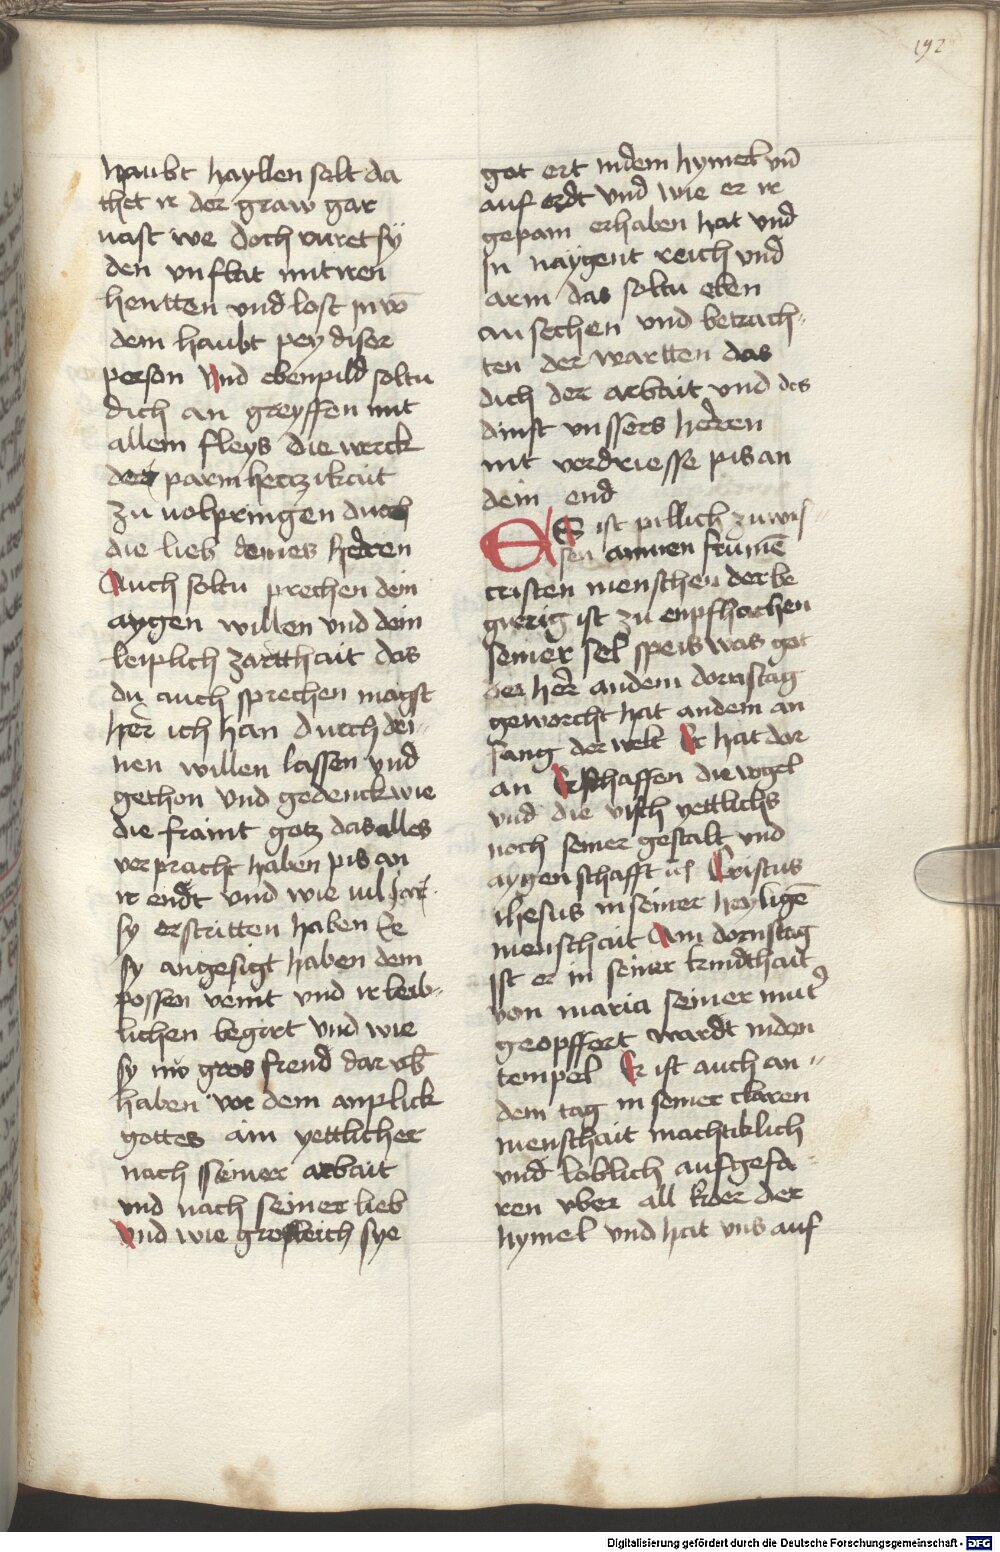 192
haubt hayllen solt da
thet ir der graw gar
vast we doch vuret sÿ
den vnflat mit iren
hentten vnd lost in vō
dem haubt pey diser
person Vnd ebenpild soltu
dich an greyffen mit
allem fleys die werck
der parmhertzikait
zu volpringen durch
die lieb deines herren
Auch soltu prechen dein
aygen willen vnd dein
leiplich zartthait das
du auch sprechen magst
her ich han durch dei-
nen willen lassen vnd
gethon vnd gedenck wie
die fraint gotz das alles
verpracht haben pis an
ir endt vnd wie vil
sy erstritten haben Ee
sy angesigt haben dem
possen veint vnd ir leib-
lichen begirt vnd wie
sy nw gros freud dar vb
haben vor dem anplick
gottes ain yettlicher
nach seiner arbait
vnd nach seiner lieb
Vnd wie grosleich sye
got ert in dem hymel vn̄
auf erdt vnd wie er ir
gepain erhaben hat vnd
In naygent reich vnd
arm das soltu eben
an sechen vnd betrach-
ten der wartten das
dich der arbait vnd des
dinst vnssers herren
nit verdriesse pis an
dein end
ES ist pillich zu wis-
sen ainnen frumē
cristen menschen der be
gierig ist zu enpfhochen
seiner sel speis was got
der her an dem dornstag
geworcht hat an dem an
fang der welt Er hat dor
an Erschaffen die vogel
vnd die visch yettlichs
noch seiner gestalt vnd
aygenschafft Cristus
ihesus in seiner heyligē
menschait Am dornstag
ist er in seiner kindthait
von maria seiner mut'
geopffert wardt in den
tempel Er ist auch an-
dem tag in seiner claren
menschait machtiklich
vnd loblich aufgefa-
ren vber all koer der
hymel vnd hat vns auf
Digitalisierung gefördert durch die Deutsche Forschungsgemeinschaft - DFG